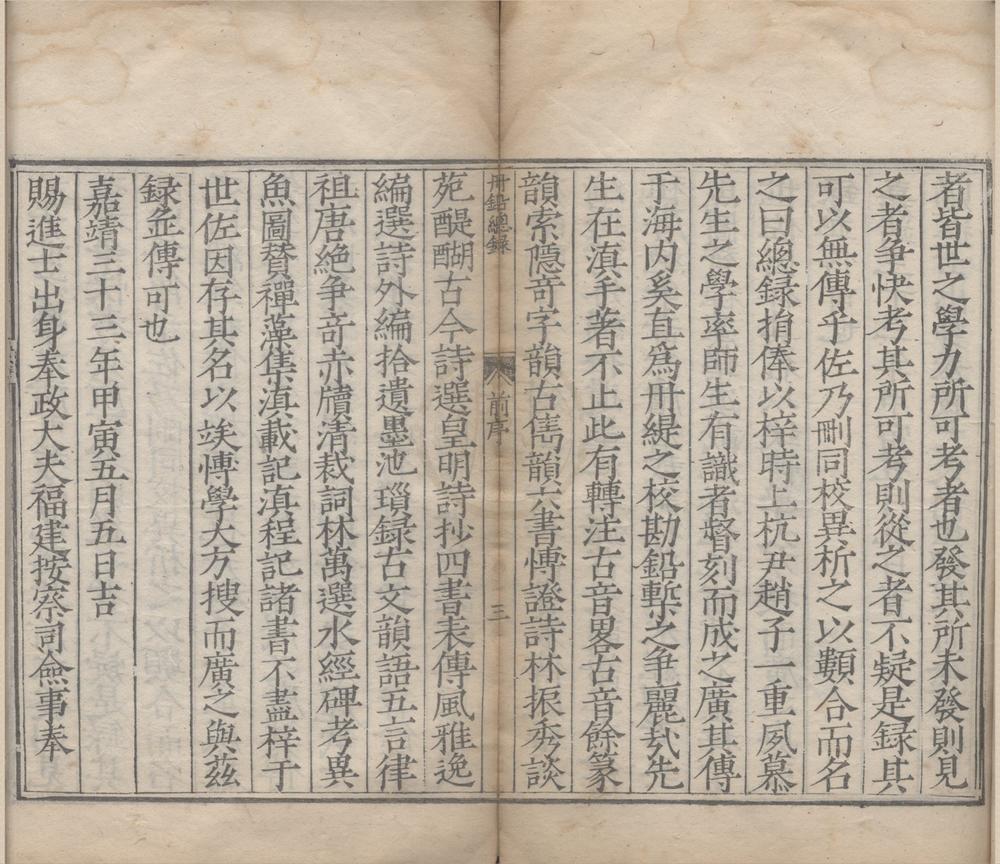 者皆世之學力所可考者也發其所未發則見
之者爭快考其所可考則從之者不疑是録其
可以無傳乎佐乃刪同校異析之以類合而名
之曰總録捐俸以梓時上杭尹趙子一重夙慕
先生之學率師生有識者督刻而成之廣其傳
于海内奚直爲丹緹之校勘鉛槧之争麗㢤先
生在滇手著不止此有轉注古音畧古音餘篆
韻索隠竒字韻古雋韻六書愽證詩林振秀談
丹鉛總録
前序
三
苑醍醐古今詩選皇明詩抄四書表傳風雅逸
編選詩外編拾遺墨池瑣録古文韻語五言律
祖唐絶争竒赤牘清裁詞林萬選水經碑考異
魚圖贊禪藻集滇載記滇程記諸書不盡梓于
世佐因存其名以竢愽學大方搜而廣之與兹
録並傳可也
嘉靖三十三年甲寅五月五日吉
賜進士出身奉政大夫福建按察司僉事奉